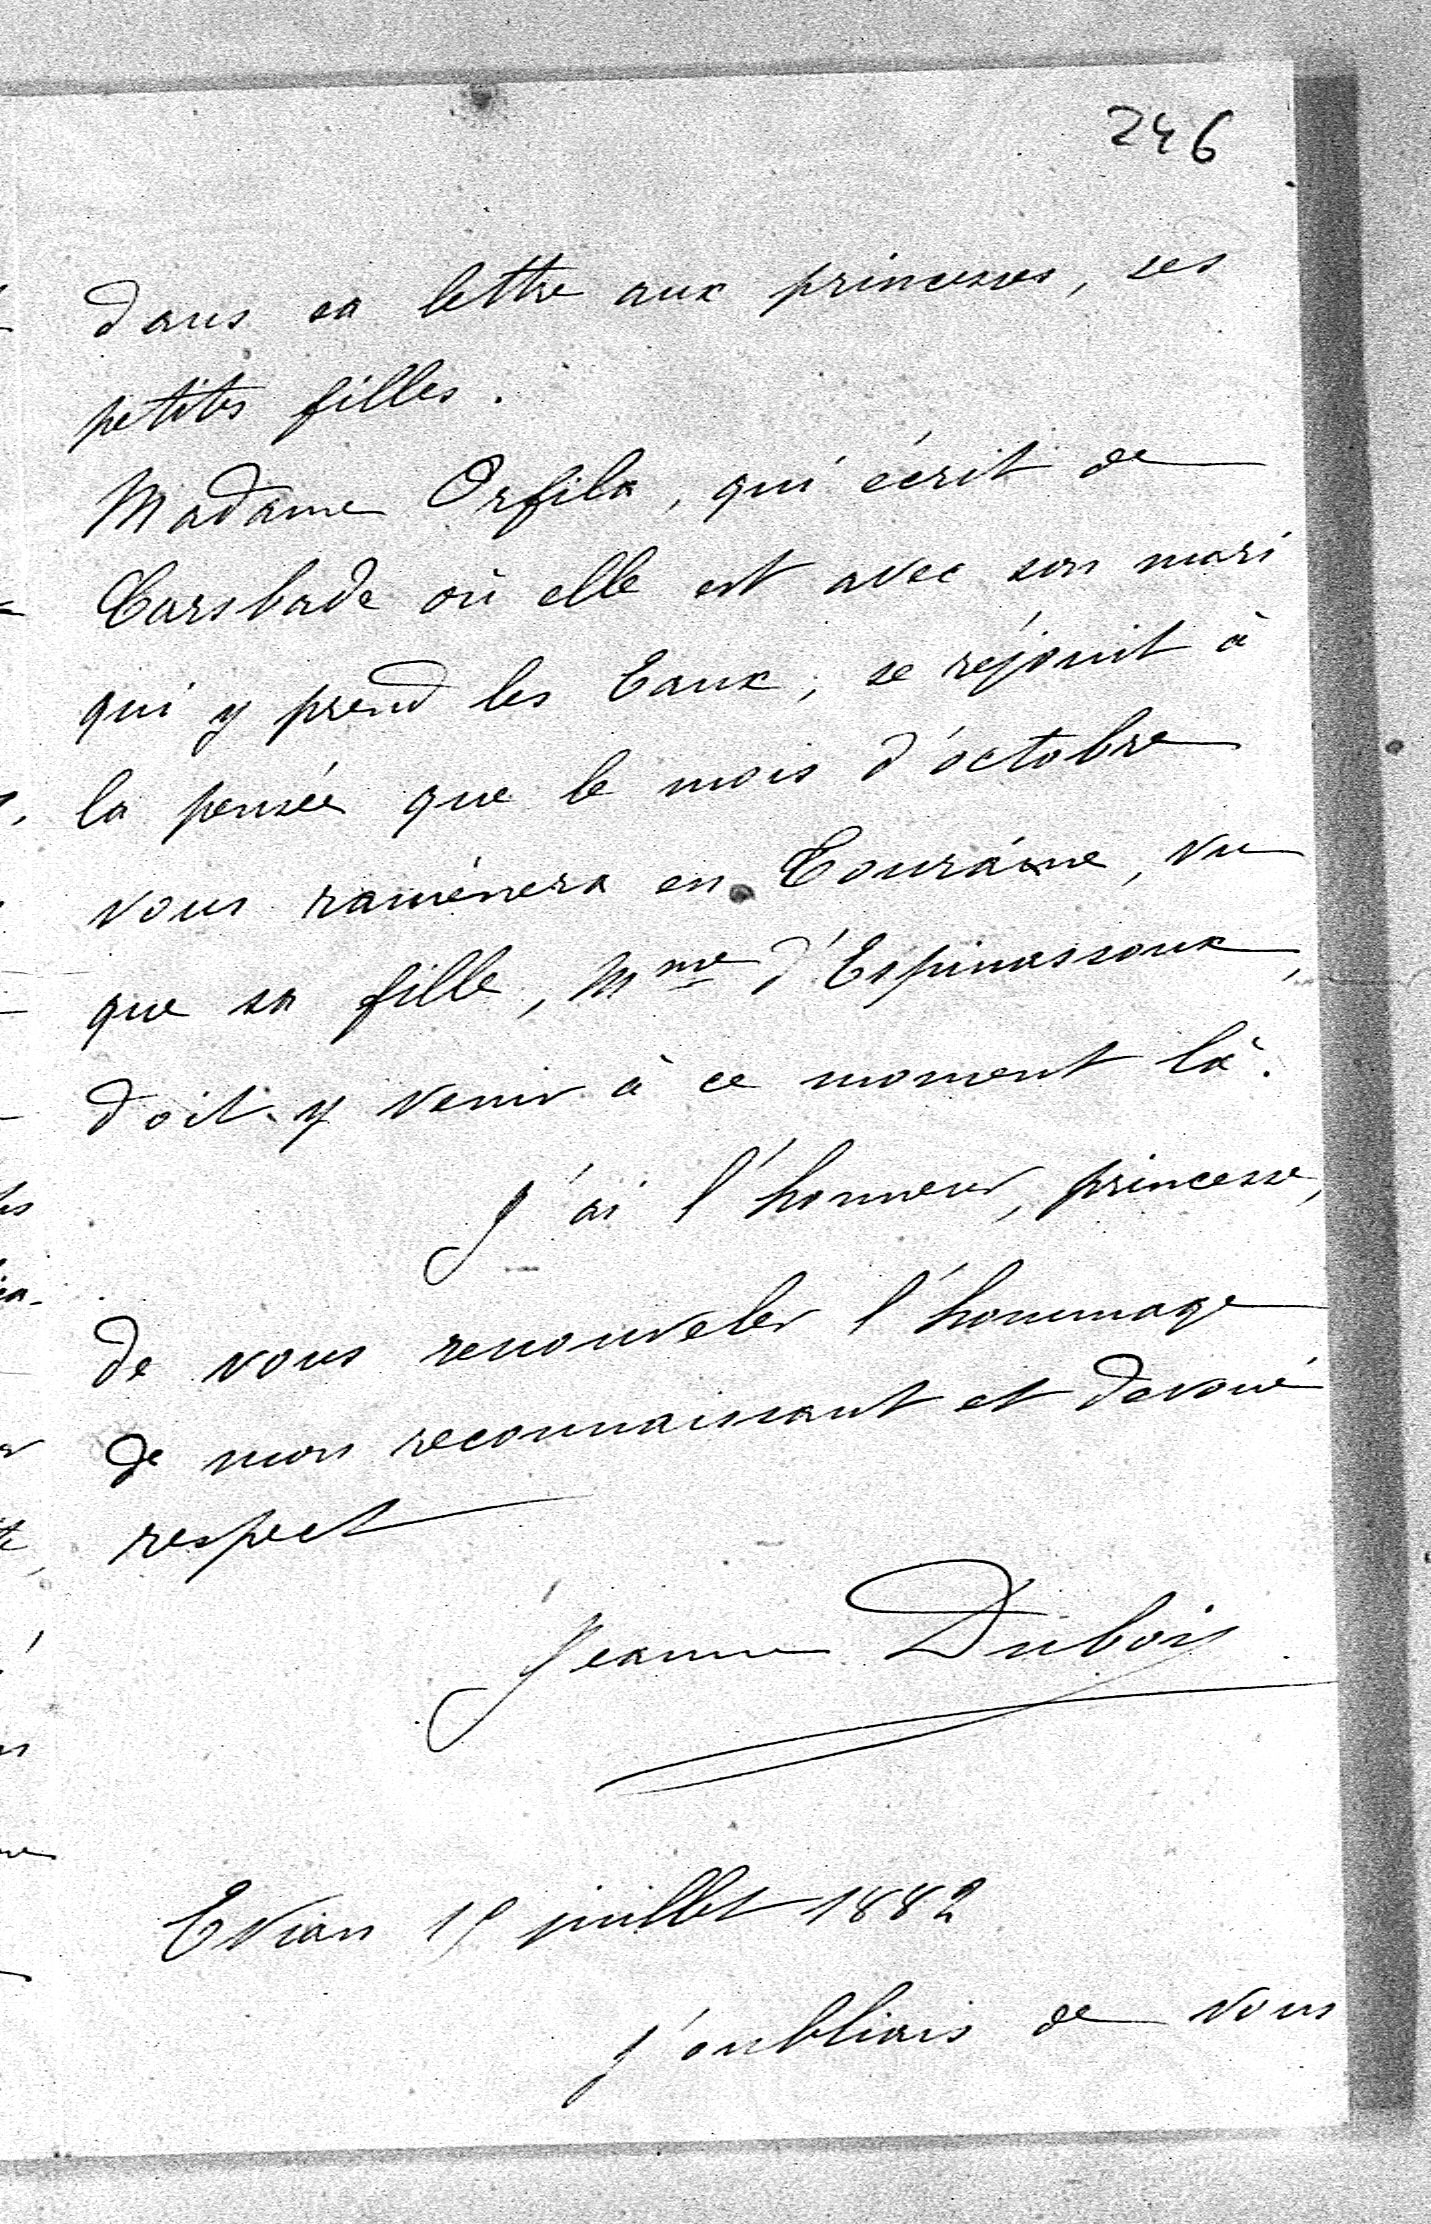 246
dans sa lettre aux princesses, ses
petites filles.
Madame Orfila, qui écrit de
Carsbade où elle est avec son mari
qui y prend les Eaux, se réjouit à
la pensée que le mois d'octobre
vous ramènera en Touraine, vu
que sa fille, Mme d'Espinassoux,
doit y venir à ce moment là.
J'ai l'honneur, princesse,
de vous renouveler l'hommage
de mon reconnaissant et dévoué
respect
Jeanne Dubois
Evian juillet 1882
J'oubliais de vous